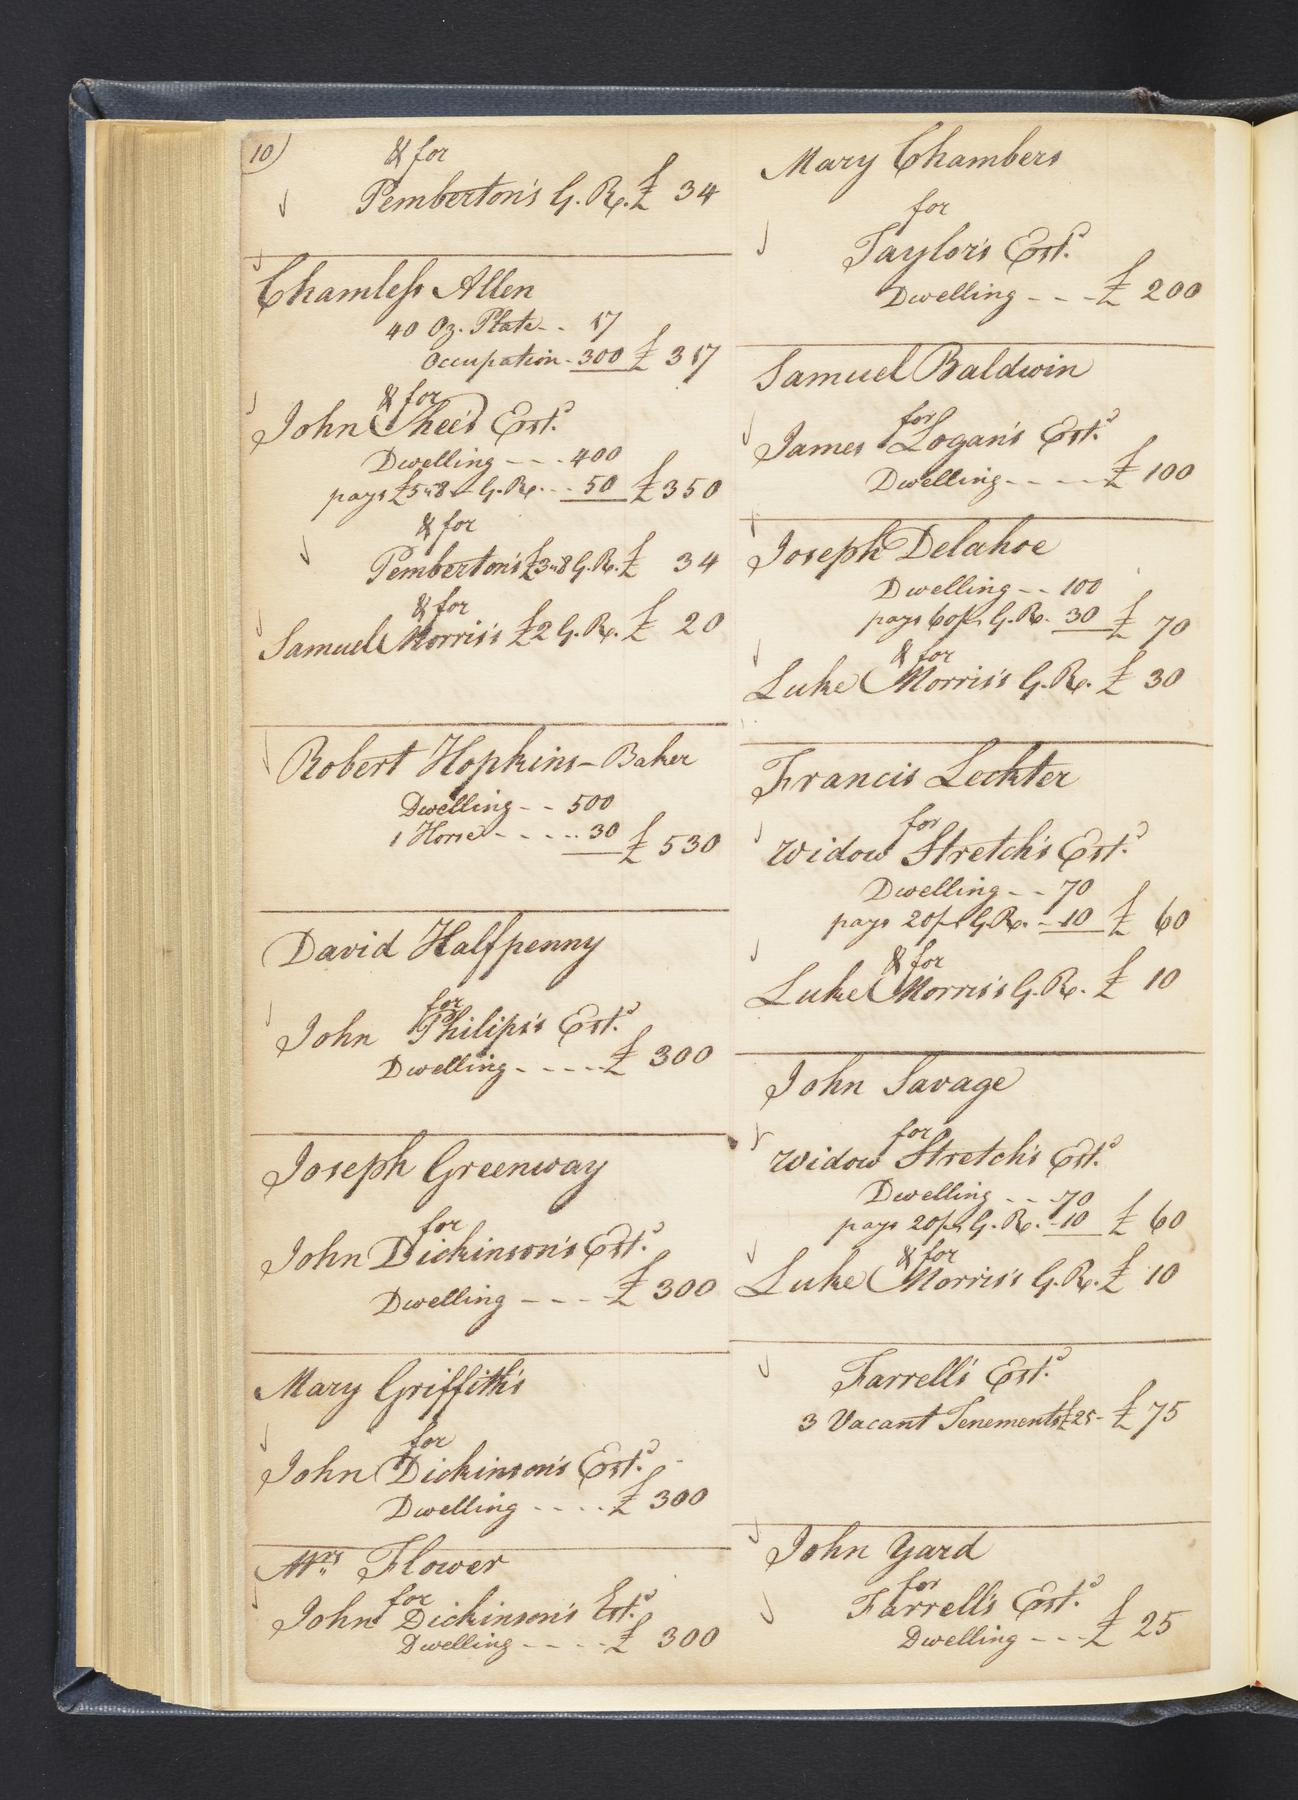 10
& for
Pemberton's G. R. £ 34
Chamless Allen
40 Oz. Plate - - 17
Occupation - 300 £ 317
& for
John Shee's Estᵈ.
Dwelling - - - 400
pays £5"8 G. R. - - 50 £ 350
& for
Pemberton's £3"8 G. R. £ 34
& for
Samuel Morris's £2 G. R. £ 20
Robert Hopkins - Baker
Dwelling - - 500
1 Horse - - - - 30 £ 530
David Halfpenny
for
John Philips's Estᵈ.
Dwelling - - - - - £ 300
Joseph Greenway
for
John Dickinson's Estᵈ.
Dwelling - - - - £ 300
Mary Griffith's
for
John Dickinson's Estᵈ.
Dwelling - - - - £ 300
Mrs Flower
for
John Dickinson's Estᵈ.
Dwelling - - - - - £ 300
Mary Chambers
for
Taylor's Estᵈ.
Dwelling - - - £ 200
Samuel Baldwin
for
James Logan's Estᵈ.
Dwelling - - - - £ 100
Joseph Delahoe
Dwelling - - 100
pays 60/ G. R. 30 £ 70
& for
Luke Morris's G. R. £ 30
Francis Leckter
for
Widow Stretch's Estᵈ.
Dwelling - - 70
pays 20/ G. R. - 10 £ 60
& for
Luke Morris's G. R. £ 10
John Savage
for
Widow Stretch's Estᵈ.
Dwelling - - - 70
pays 20/ G. R. - 10 £ 60
& for
Luke Morris's G. R. £ 10
Farrell's Estᵈ.
3 Vacant Tenements £25 - £ 75
John Yard
for
Farrell's Estᵈ.
Dwelling - - - £ 25